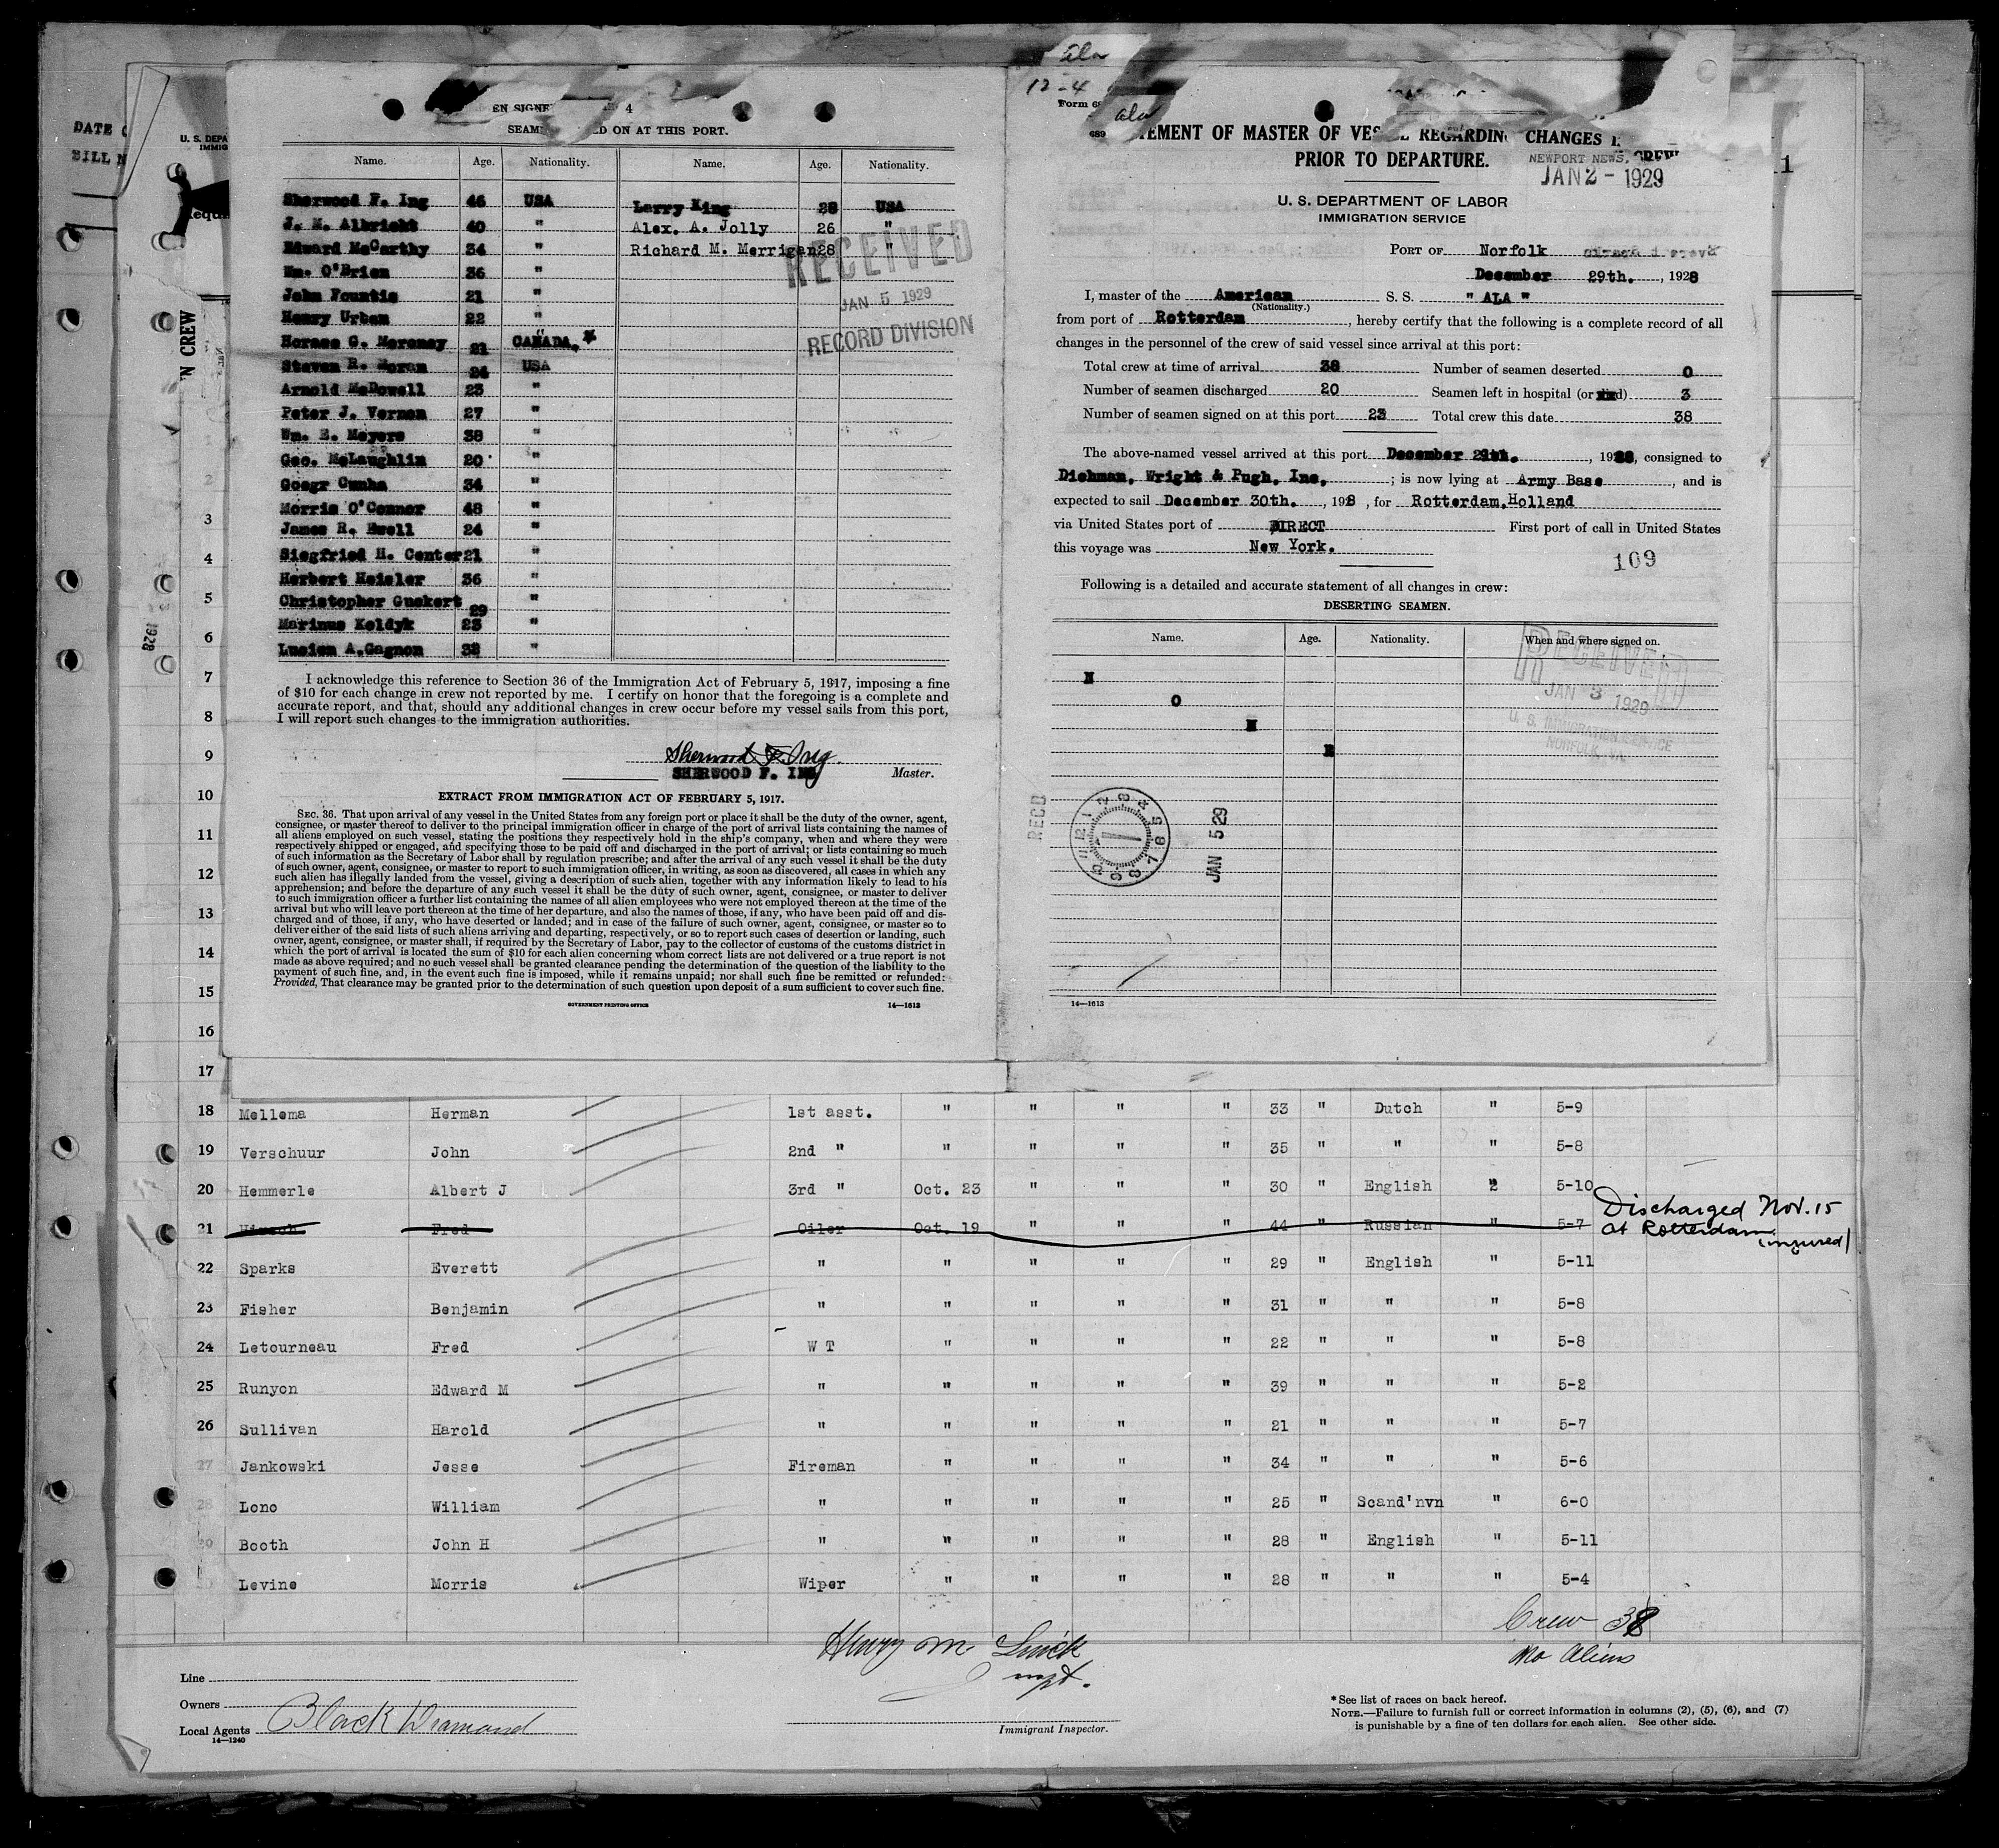 Ala
12-4
Form 68
Ala
689
DATE
BILL N
U. S. DEPA
IMMIG
Requi
'N CREW
EN SIGNE 4
SEAM D ON AT THIS PORT.
Name. Age. Nationality. Name. Age. Nationality.
Sherwood F. Ing 46 USA Larry King 28 USA
J. M. Albright 40 " Alex. A. Jolly 26 "
Edward McCarthy 34 " Richard M. Merrigan 28 "
Wm. O'Brien 36 "
John Fountis 21 "
Henry Urban 22 "
Horace G. 21 CANADA. *
Steven R. Moran 24 USA
Arnold McDowell 23 "
Peter J. Vernon 27 "
Wm. E. Meyers 38 "
Geo. McLaughlin 20 "
Cunha 34 "
Morris O'Connor 48 "
James R. Ewell 24 "
Siegfried H. Center 21 "
Herbert Heisler 36 "
Christopher Guskert 29 "
Marinus Koldyk 23 "
Lucien A. Gagnon 38 "
RECEIVED
JAN 5 1929
RECORD DIVISION
I acknowledge this reference to Section 36 of the Immigration Act of February 5, 1917, imposing a fine
of $10 for each change in crew not reported by me. I certify on honor that the foregoing is a complete and
accurate report, and that, should any additional changes in crew occur before my vessel sails from this port,
I will report such changes to the immigration authorities.
Sherwood F. Ing
SHERWOOD F. ING Master.
EXTRACT FROM IMMIGRATION ACT OF FEBRUARY 5, 1917.
SEC. 36. That upon arrival of any vessel in the United States from any foreign port or place it shall be the duty of the owner, agent,
consignee, or master thereof to deliver to the principal immigration officer in charge of the port of arrival lists containing the names of
all aliens employed on such vessel, stating the positions they respectively hold in the ship's company, when and where they were
respectively shipped or engaged, and specifying those to be paid off and discharged in the port of arrival; or lists containing so much
of such information as the Secretary of Labor shall by regulation prescribe; and after the arrival of any such vessel it shall be the duty
of such owner, agent, consignee, or master to report to such immigration officer, in writing, as soon as discovered, all cases in which any
such alien has illegally landed from the vessel, giving a description of such alien, together with any information likely to lead to his
apprehension; and before the departure of any such vessel it shall be the duty of such owner, agent, consignee, or master to deliver
to such immigration officer a further list containing the names of all alien employees who were not employed thereon at the time of the
arrival but who will leave port thereon at the time of her departure, and also the names of those, if any, who have been paid off and dis-
charged and of those, if any, who have deserted or landed; and in case of the failure of such owner, agent, consignee, or master so to
deliver either of the said lists of such aliens arriving and departing, respectively, or so to report such cases of desertion or landing, such
owner, agent, consignee, or master shall, if required by the Secretary of Labor, pay to the collector of customs of the customs district in
which the port of arrival is located the sum of $10 for each alien concerning whom correct lists are not delivered or a true report is not
made as above required; and no such vessel shall be granted clearance pending the determination of the question of the liability to the
payment of such fine, and, in the event such fine is imposed, while it remains unpaid; nor shall such fine be remitted or refunded:
Provided, That clearance may be granted prior to the determination of such question upon deposit of a sum sufficient to cover such fine.
GOVERNMENT PRINTING OFFICE 14—1613
TEMENT OF MASTER OF VESSEL REGARDING CHANGES I
PRIOR TO DEPARTURE.
NEWPORT NEWS, CREW
JAN 2 - 1929
U. S. DEPARTMENT OF LABOR
IMMIGRATION SERVICE
PORT OF Norfolk
December 29th. , 1928
I, master of the American S. S. " ALA "
(Nationality.)
from port of Rotterdam , hereby certify that the following is a complete record of all
changes in the personnel of the crew of said vessel since arrival at this port:
Total crew at time of arrival 38 Number of seamen deserted 0
Number of seamen discharged 20 Seamen left in hospital (or d) 3
Number of seamen signed on at this port 23 Total crew this date 38
The above-named vessel arrived at this port December , 1928, consigned to
Dichman, Wright & Pugh, Inc. ; is now lying at Army Base , and is
expected to sail December 30th. , 1928 , for Rotterdam, Holland
via United States port of DIRECT First port of call in United States
this voyage was New York.
109
Following is a detailed and accurate statement of all changes in crew:
DESERTING SEAMEN.
Name. Age. Nationality. When and where signed on.
N
O
N
E
RECEIVED
JAN 3 1929
U. S. IMMIGRATION SERVICE
NORFOLK, VA.
RECD
JAN 5 29
14—1613
1928
3
4
5
6
7
8
9
10
11
12
13
14
15
16
17
18 Mellema Herman 1st asst. " " " " 33 " Dutch " 5-9
19 Verschuur John 2nd " " " " " 35 " " " 5-8
20 Hemmerle Albert J 3rd " Oct. 23 " " " 30 " English " 5-10
21 Hirsch Fred Oiler Oct. 19 " " " 44 " Russian " 5-7 Discharged Nov. 15
at Rotterdam
(injured)
22 Sparks Everett " " " " " 29 " English " 5-11
23 Fisher Benjamin " " " " " 31 " " " 5-8
24 Letourneau Fred W T " " " " 22 " " " 5-8
25 Runyon Edward M " " " " " 39 " " " 5-2
26 Sullivan Harold " " " " " 21 " " " 5-7
27 Jankowski Jesse Fireman " " " " 34 " " " 5-6
28 Lono William " " " " " 25 " Scand'nvn " 6-0
Booth John H " " " " " 28 " English " 5-11
Levine Morris Wiper " " " " 28 " " " 5-4
Crew 38
No Aliens
Henry M.
Line
Owners
Local Agents Black Diamond
14—1240
Immigrant Inspector.
* See list of races on back hereof.
NOTE.—Failure to furnish full or correct information in columns (2), (5), (6), and (7)
is punishable by a fine of ten dollars for each alien. See other side.